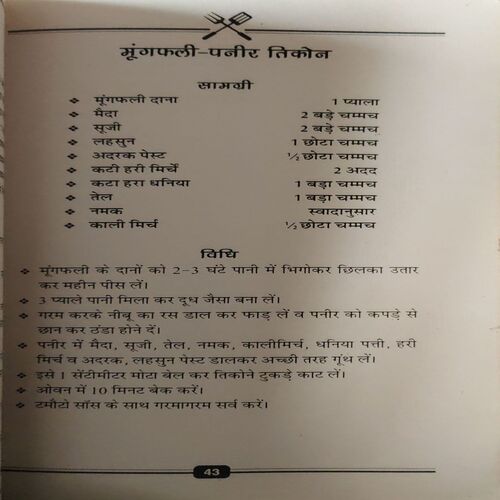 मूंगफली-पनीर तिकोन
सामग्री
❖ मूंगफली दाना 1 प्याला
❖ मैदा 2 बड़े चम्मच
❖ सूजी 2 बड़े चम्मच
❖ लहसुन 1 छोटा चम्मच
❖ अदरक पेस्ट ½ छोटा चम्मच
❖ कटी हरी मिर्चें 2 अदद
❖ कटा हरा धनिया 1 बड़ा चम्मच
❖ तेल 1 बड़ा चम्मच
❖ नमक स्वादानुसार
❖ काली मिर्च ½ छोटा चम्मच
विधि
❖ मूंगफली के दानों को 2-3 घंटे पानी में भिगोकर छिलका उतार
कर महीन पीस लें।
❖ 3 प्याले पानी मिला कर दूध जैसा बना लें।
❖ गरम करके नीबू का रस डाल कर फाड़ लें व पनीर को कपड़े से
छान कर ठंडा होने दें।
❖ पनीर में मैदा, सूजी, तेल, नमक, कालीमिर्च, धनिया पत्ती, हरी
मिर्च व अदरक, लहसुन पेस्ट डालकर अच्छी तरह गूंथ लें।
❖ इसे 1 सेंटीमीटर मोटा बेल कर तिकोने टुकड़े काट लें।
❖ ओवन में 10 मिनट बेक करें।
❖ टमौटो सॉस के साथ गरमागरम सर्व करें।
43